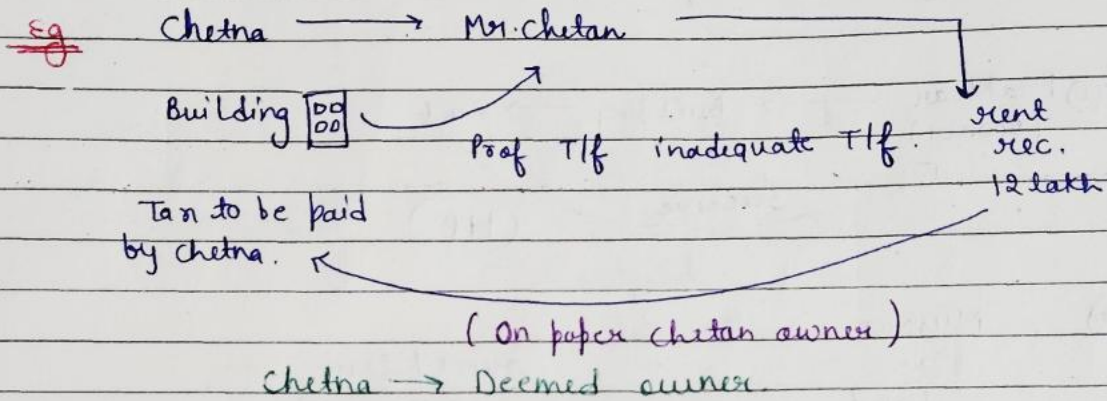 Eg Chetna → Mr. Chetan
Building
Prof T/f inadequate T/f.
rent
rec.
12 lakh
Tax to be paid
by Chetna.
(On paper Chetan owner)
Chetna → Deemed owner.